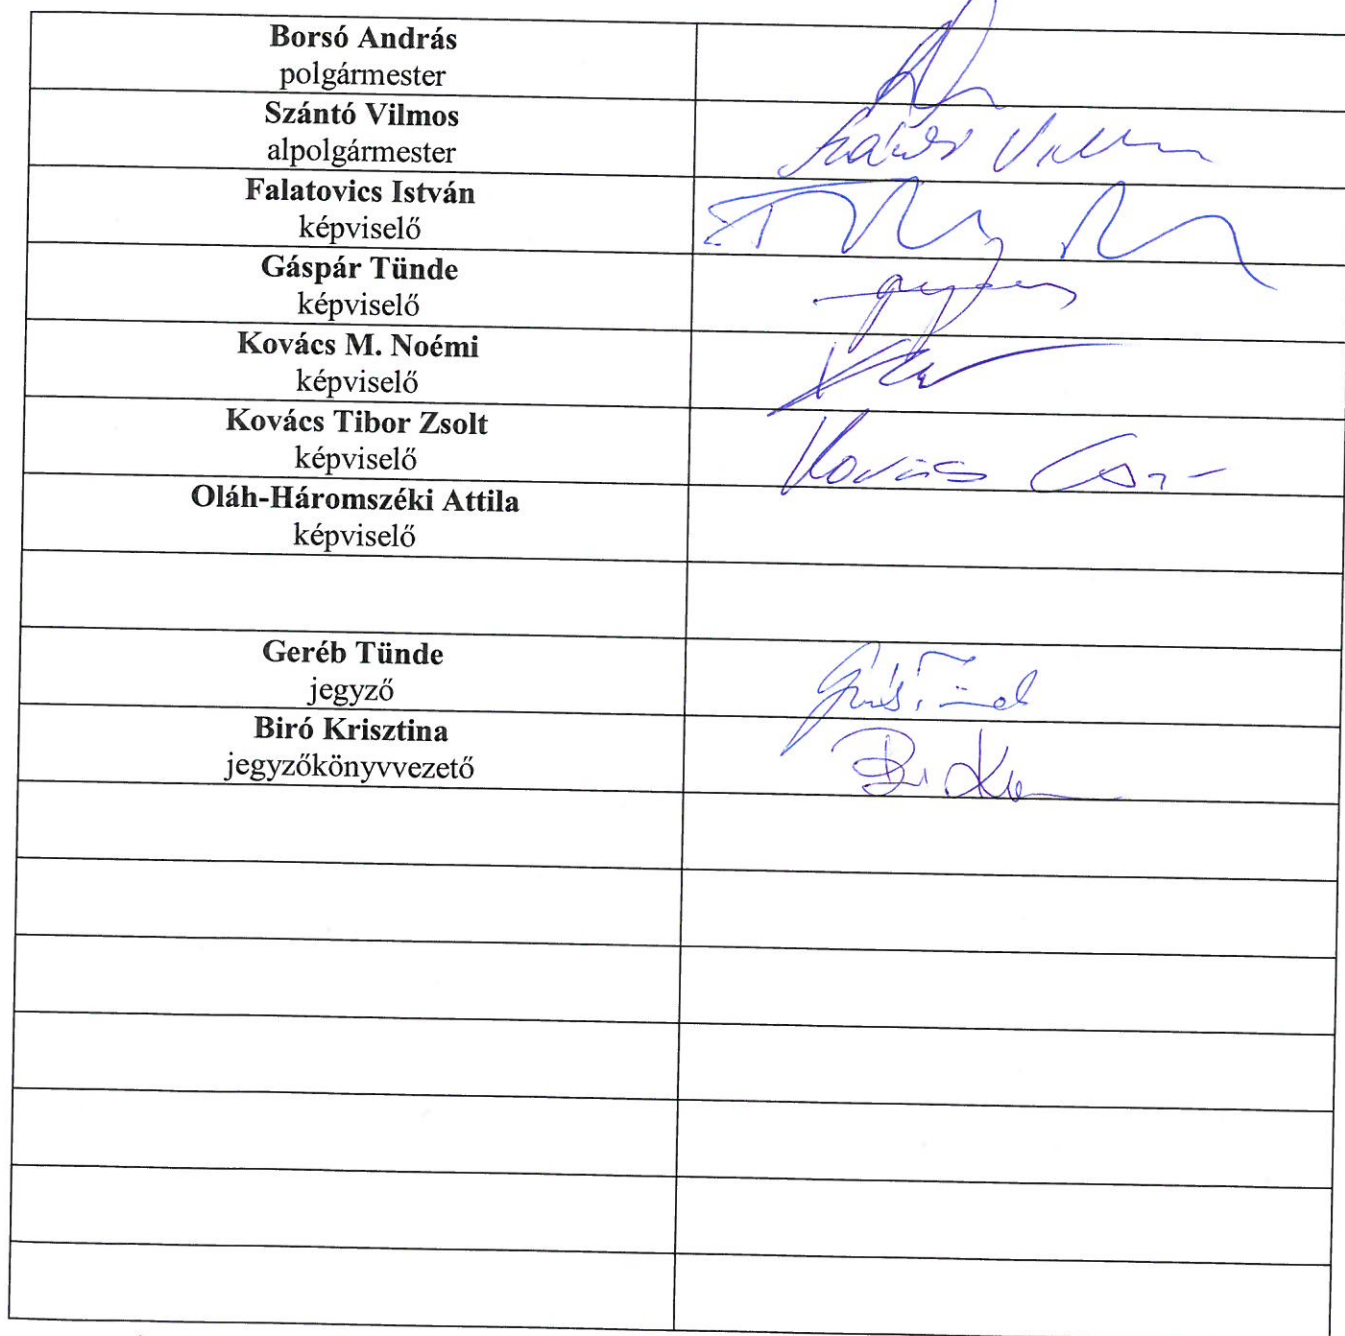 Borsó András
polgármester
Szántó Vilmos
alpolgármester
Falatovics István
képviselő
Gáspár Tünde
képviselő
Kovács M. Noémi
képviselő
Kovács Tibor Zsolt
képviselő
Kovács
Oláh-Háromszéki Attila
képviselő
Geréb Tünde
jegyző
Biró Krisztina
jegyzőkönyvvezető